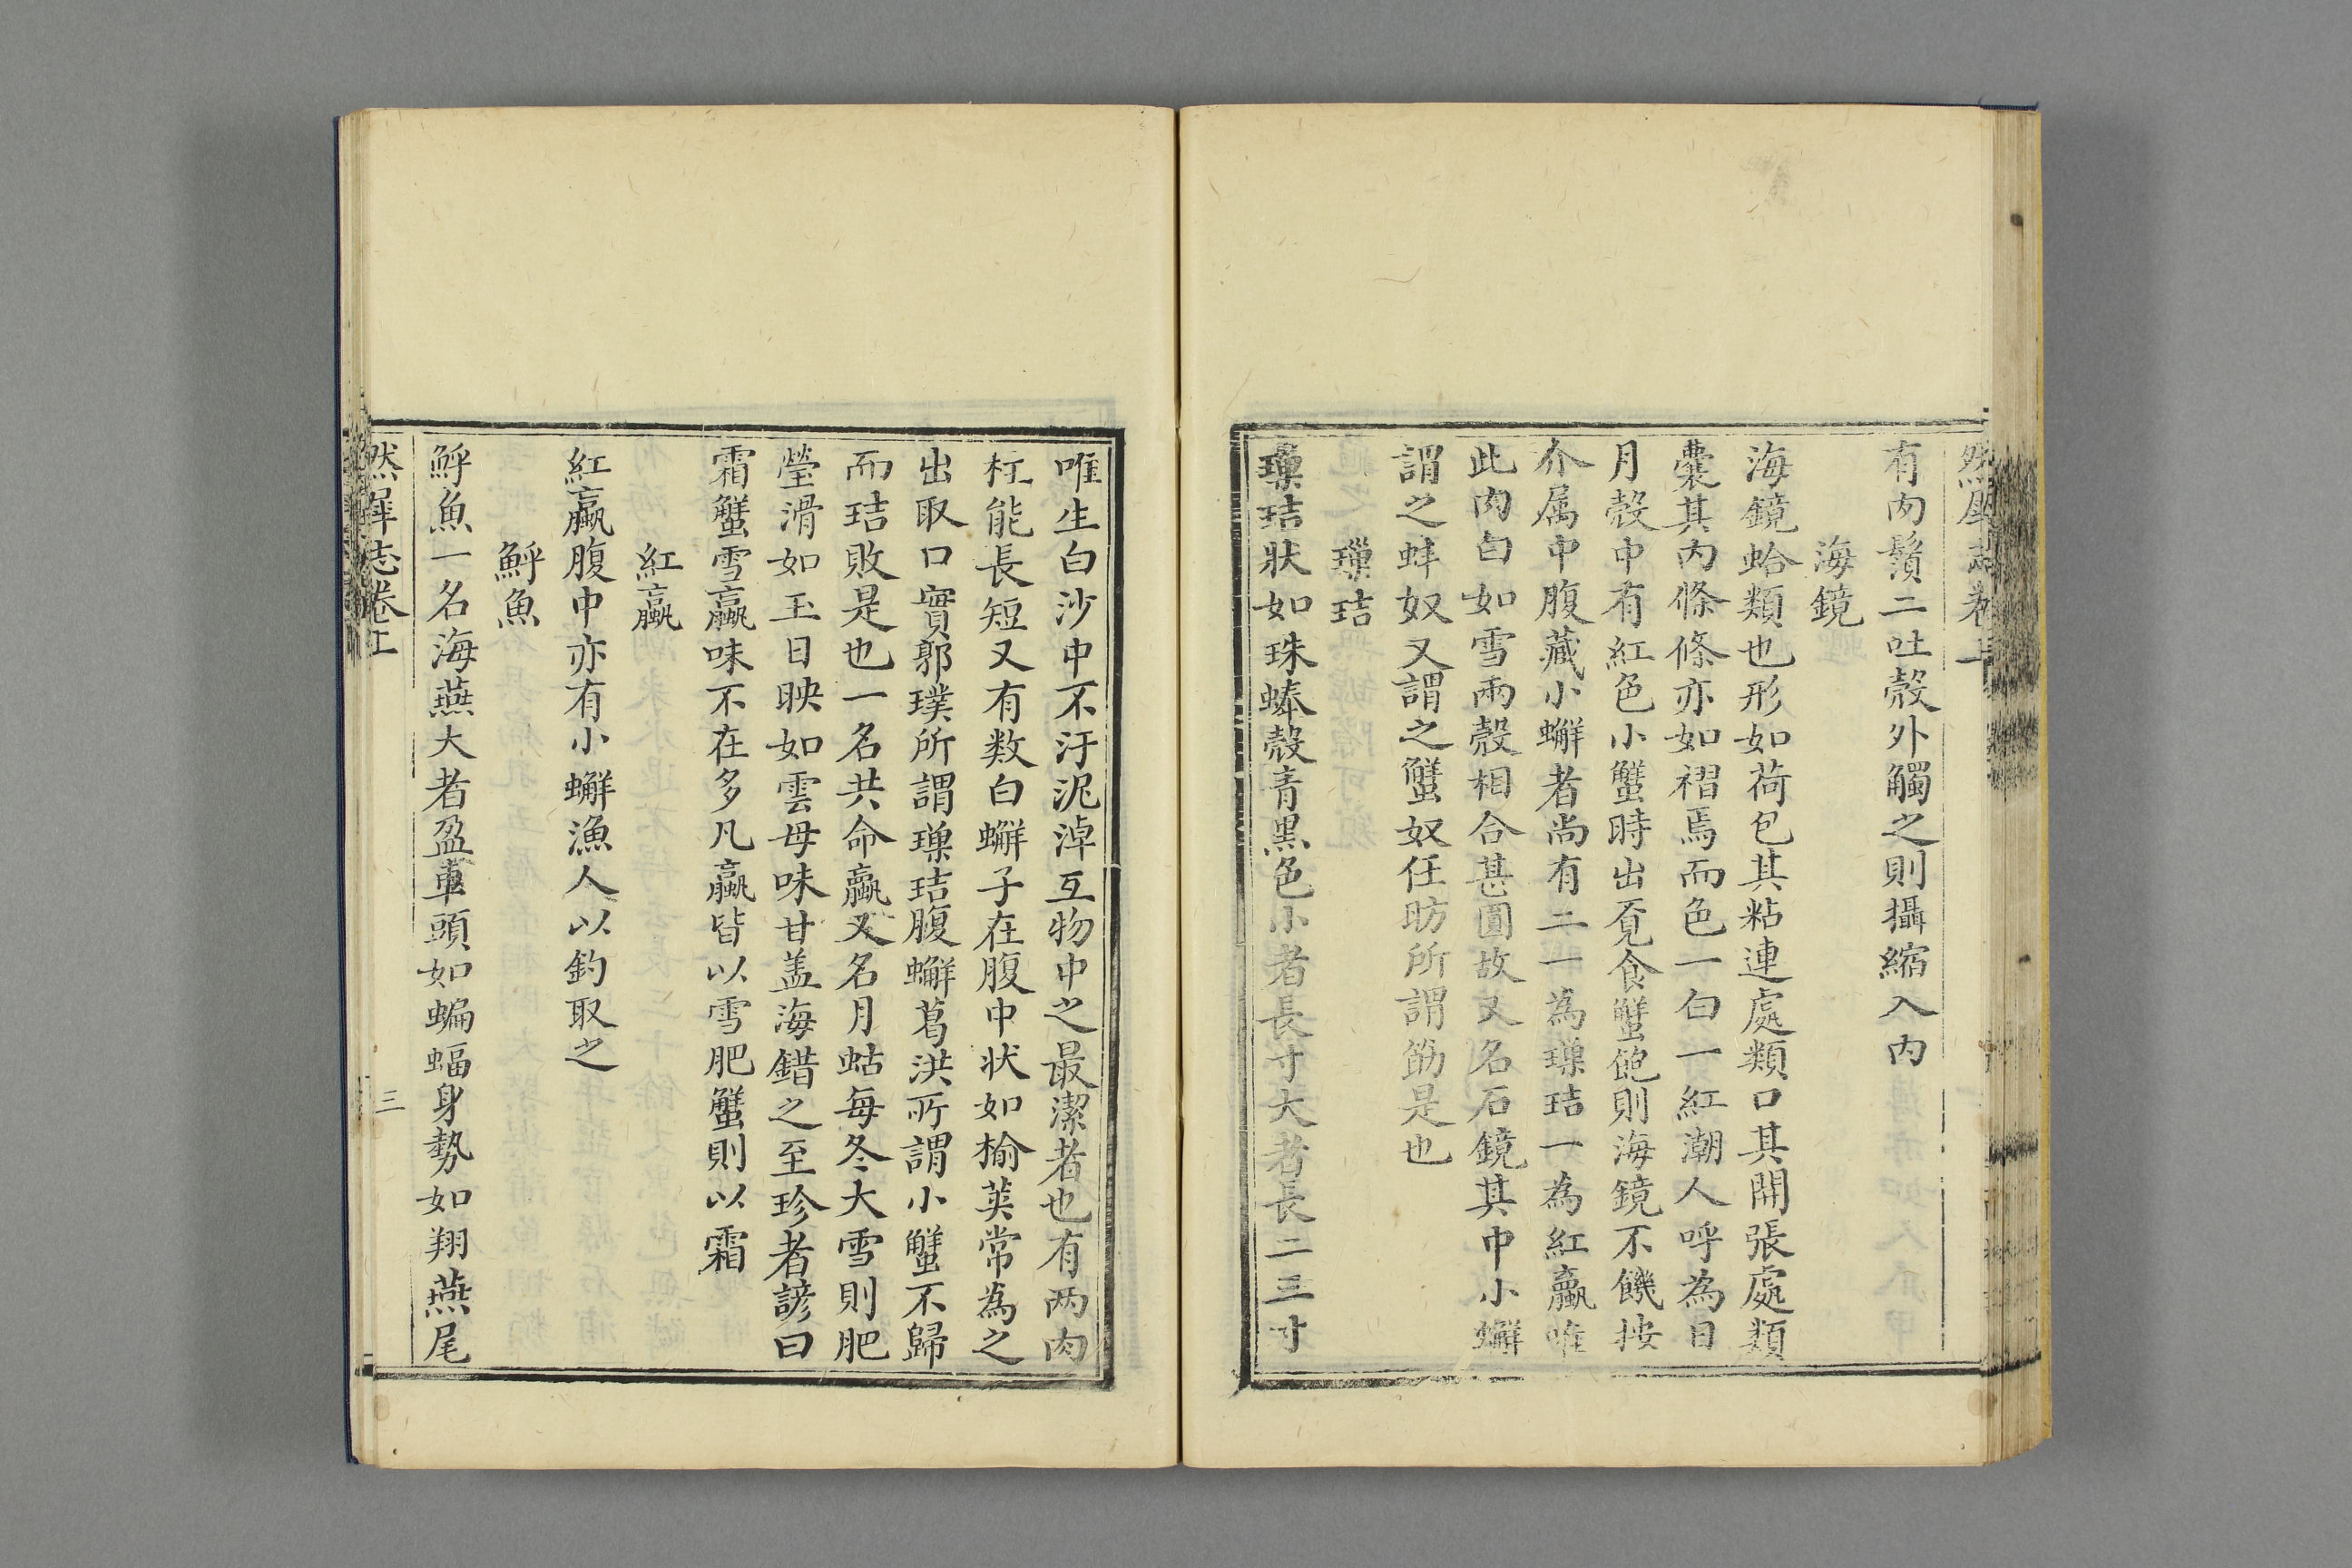 然犀志卷上
有肉鬚二吐殼外觸之則攝縮入内
海鏡
海鏡蛤類也形如荷包其粘連處類口其開張處類
囊其内條條亦如褶焉而色一白一紅潮人呼為日
月殼中有紅色小蟹時出覓食蟹飽則海鏡不饑按
介属中腹藏小蠏者尚有二一為璅珪一為紅蠃唯
此肉白如雪兩殼相合甚圓故又名石鏡其中小蠏
謂之蚌奴又謂之蟹奴任昉所謂筯是也
璅珪
璅珪狀如珠蜯殼青黑色小者長寸大者長二三寸
唯生白沙中不汙泥淖互物中之最潔者也有两肉
柱能長短又有数白蠏子在腹中状如榆荚常為之
出取口實郭璞所謂璅珪腹蠏葛洪所謂小蟹不歸
而珪敗是也一名共命蠃又名月蛄每冬大雪則肥
瑩滑如玉日映如雲母味甘盖海錯之至珍者諺曰
霜蟹雪蠃味不在多凡蠃皆以雪肥蟹則以霜
紅蠃
紅蠃腹中亦有小蠏漁人以釣取之
魸魚
魸魚一名海燕大者盈車頭如蝙蝠身勢如翔燕尾
然犀志卷上
三